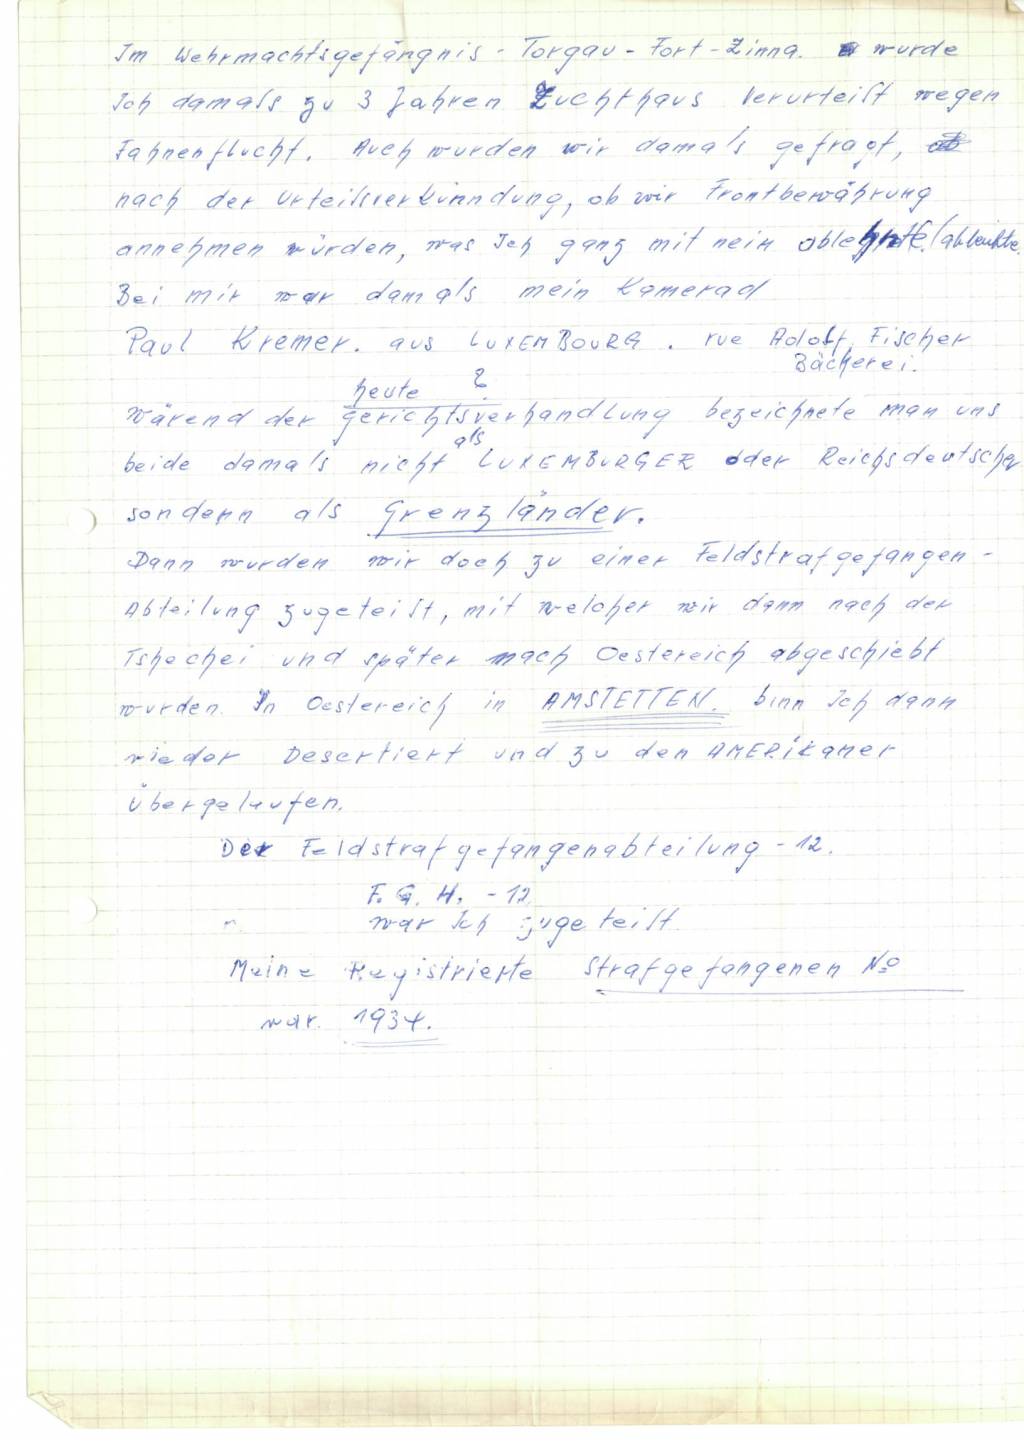 Im Wehrmachtsgefängnis - Torgau - Fort - Zinna. wurde
Ich damals zu 3 Jahren Zuchthaus Verurteilt wegen
Fahnenflucht. Auch wurden wir damals gefragt,
nach der Urteilsverkünndung, ob wir Frontbewährung
annehmen würden, was Ich ganz mit nein ablehnte
Bei mir war damals mein Kamerad
Paul Kremer. aus LUXEMBOURG. rue Adolf, Fischer
Bäckerei.
heute ?
Wärend der gerichtsverhandlung bezeichnete man uns
als
beide damals nicht LUXEMBURGER oder Reichsdeutscher
sondern als Grenzländer.
Dann wurden wir doch zu einer Feldstrafgefangen -
Abteilung zugeteilt, mit welcher wir dann nach der
Tshechei und später nach Oestereich abgeschiebt
wurden. In Oestereich in AMSTETTEN. binn Ich dann
wieder Desertiert und zu den AMERIKANER
übergelaufen.
Der Feldstrafgefangenabteilung - 12.
F. G. A. - 12
war Ich zugeteilt
Meine Registrierte Strafgefangenen No
war. 1934.